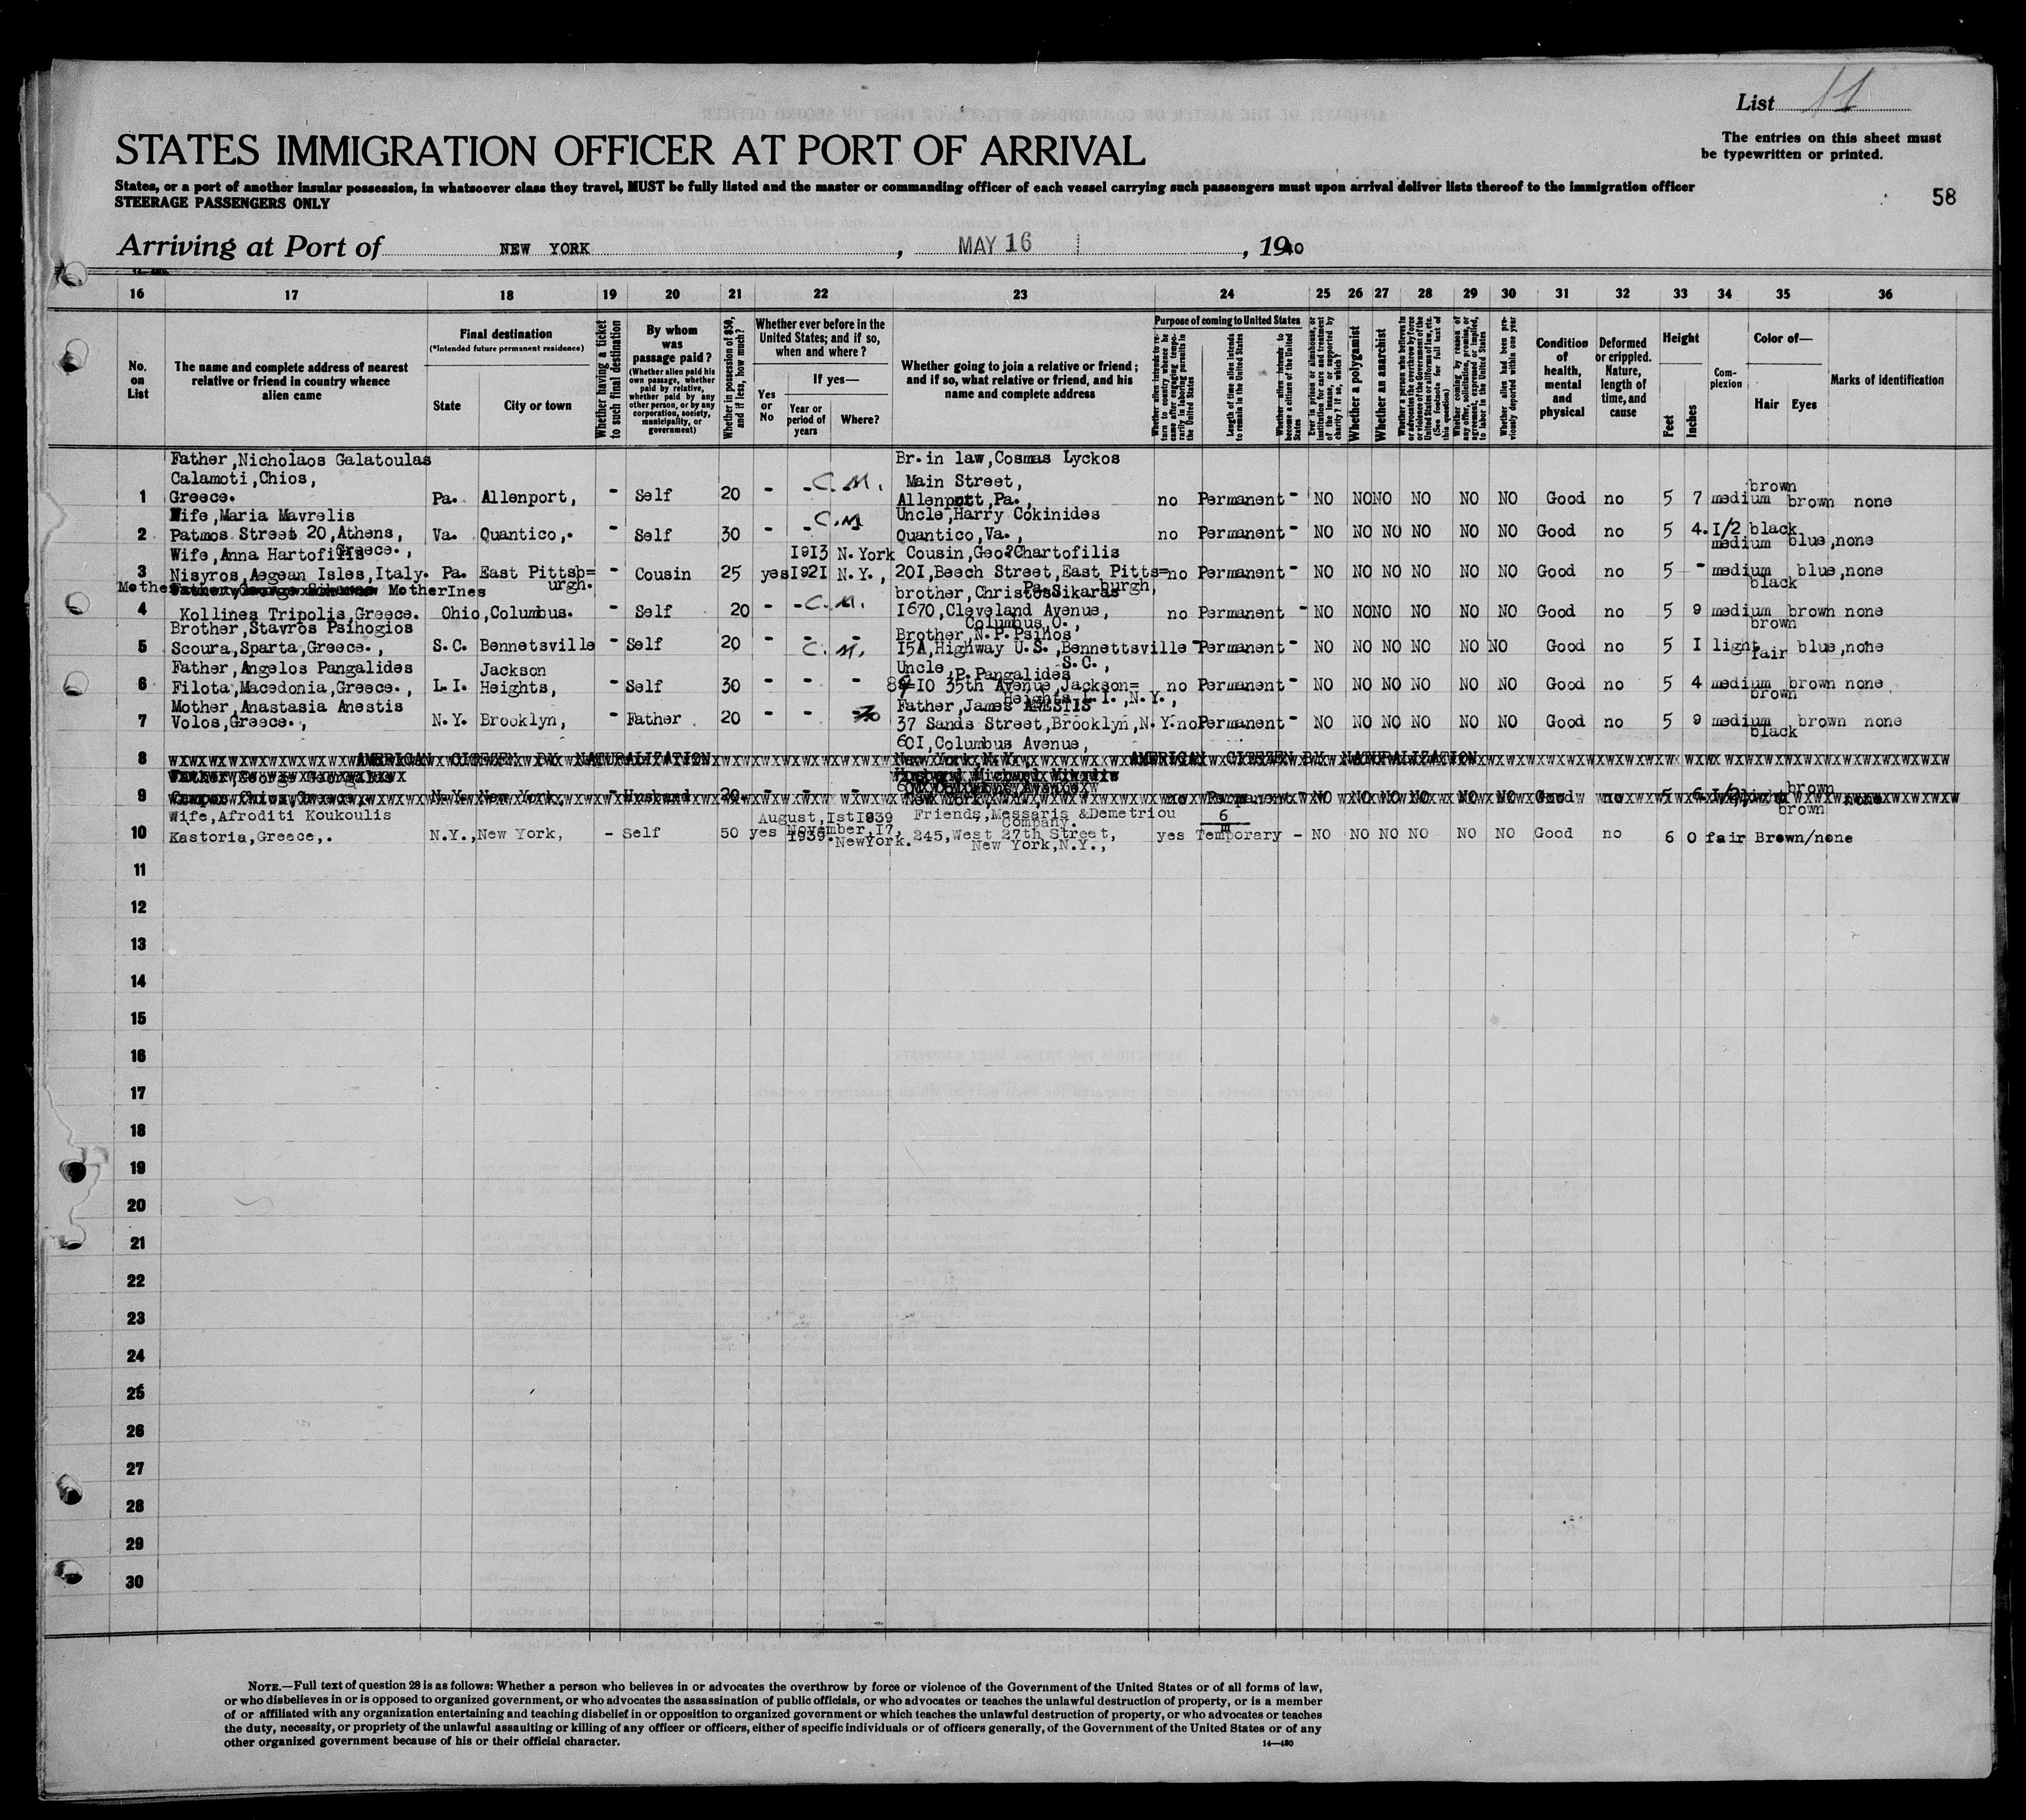 List 11
The entries on this sheet must
be typewritten or printed.
STATES IMMIGRATION OFFICER AT PORT OF ARRIVAL
States, or a port of another insular possession, in whatsoever class they travel, MUST be fully listed and the master or commanding officer of each vessel carrying such passengers must upon arrival deliver lists thereof to the immigration officer
STEERAGE PASSENGERS ONLY
58
Arriving at Port of NEW YORK, MAY 16, 1940
16 17 18 19 20 21 22 23 24 25 26 27 28 29 30 31 32 33 34 35 36
No. on List
The name and complete address of nearest relative or friend in country whence alien came
Final destination
(*Intended future permanent residence)
State
City or town
Whether having a ticket to such final destination
By whom was passage paid?
(Whether alien paid his own passage, whether paid by relative, whether paid by any other person, or by any corporation, society, municipality, or government)
Whether in possession of $50, and if less, how much?
Whether ever before in the United States; and if so, when and where?
Yes or No
If yes—
Year or period of years
Where?
Whether going to join a relative or friend; and if so, what relative or friend, and his name and complete address
Purpose of coming to United States
Whether alien intends to return to country whence he came after engaging temporarily in laboring pursuits in the United States
Length of time alien intends to remain in the United States
Whether alien intends to become a citizen of the United States
Ever in prison or almshouse, or institution for care and treatment of the insane, or supported by charity? If so, which?
Whether a polygamist
Whether an anarchist
Whether a person who believes in or advocates the overthrow by force or violence of the Government of the United States or all forms of law, etc. (See footnote for full text of this question)
Whether coming by reason of any offer, solicitation, promise, or agreement, expressed or implied, to labor in the United States
Whether alien had been previously deported within one year
Condition of health, mental and physical
Deformed or crippled. Nature, length of time, and cause
Height
Feet
Inches
Complexion
Color of—
Hair Eyes
Marks of identification
Father,Nicholaos Galatoulas Br.in law,Cosmas Lyckos
Calamoti,Chios, C.M. Main Street, brown
1 Greece. Pa. Allenport, - Self 20 - - Allenport,Pa., no Permanent - NO NO NO NO NO NO Good no 5 7 medium brown none
Wife,Maria Mavrelis C.M Uncle,Harry Cokinides
2 Patmos Street 20,Athens, Va. Quantico,. Self 30 - - Quantico,Va., no Permanent - NO NO NO NO NO NO Good no 5 4.1/2 black
Greece., medium blue,none
Wife,Anna Hartofilis 1913 N.York Cousin,Geo.Chartofilis
3 Nisyros,Aegean Isles,Italy. Pa. East Pittsb= - Cousin 25 yes 1921 N.Y., 201,Beech Street,East Pitts= no Permanent - NO NO NO NO NO NO Good no 5 - medium blue,none
urgh. burgh, Pa. black
Mother Ines brother,Christos Sikaras
4 Kollines Tripolis,Greece. Ohio,Columbus. - Self 20 - - C.M. 1670,Cleveland Avenue, no Permanent - NO NO NO NO NO NO Good no 5 9 medium brown none
Columbus,O., brown
Brother,Stavros Psihogios Brother,N.P.Psihos
5 Scoura,Sparta,Greece., S.C. Bennetsville - Self 20 - - - C.M. 15A,Highway U.S.,Bennettsville - Permanent - NO NO NO NO NO NO Good no 5 1 light blue,none
S.C., fair
Father,Angelos Pangalides Jackson Uncle,P.Pangalides
6 Filota,Macedonia,Greece., L.I. Heights, - Self 30 - - - -10 35th Avenue,Jackson= no Permanent - NO NO NO NO NO NO Good no 5 4 medium brown none
Heights,L.I.,N.Y., brown
Mother,Anastasia Anestis Father,James ANESTIS
7 Volos,Greece., N.Y. Brooklyn, - Father 20 - - 37 Sands Street,Brooklyn,N.Y. no Permanent - NO NO NO NO NO NO Good no 5 9 medium brown none
601,Columbus Avenue, black
8 AMERICAN CITEZEN BY NATURALIZATION New York,N.Y., AMERICAN CITEZEN BY NATURALIZATION
9 N.Y. New York, - Husband 20 - - - New York, no Permanent NO NO NO NO NO NO Good no 5 6 1/2 light brown none
brown
Wife,Afroditi Koukoulis August,1st 1939 Friends,Messaris &Demetriou 6
Company. m
10 Kastoria,Greece,. N.Y.,New York, - Self 50 yes November,17, 1939. NewYork. 245,West 27th Street, yes Temporary - NO NO NO NO NO NO Good no 6 0 fair Brown/none
New York,N.Y.,
11
12
13
14
15
16
17
18
19
20
21
22
23
24
25
26
27
28
29
30
NOTE.—Full text of question 28 is as follows: Whether a person who believes in or advocates the overthrow by force or violence of the Government of the United States or of all forms of law,
or who disbelieves in or is opposed to organized government, or who advocates the assassination of public officials, or who advocates or teaches the unlawful destruction of property, or is a member
of or affiliated with any organization entertaining and teaching disbelief in or opposition to organized government or which teaches the unlawful destruction of property, or who advocates or teaches
the duty, necessity, or propriety of the unlawful assaulting or killing of any officer or officers, either of specific individuals or of officers generally, of the Government of the United States or of any
other organized government because of his or their official character.
14—480